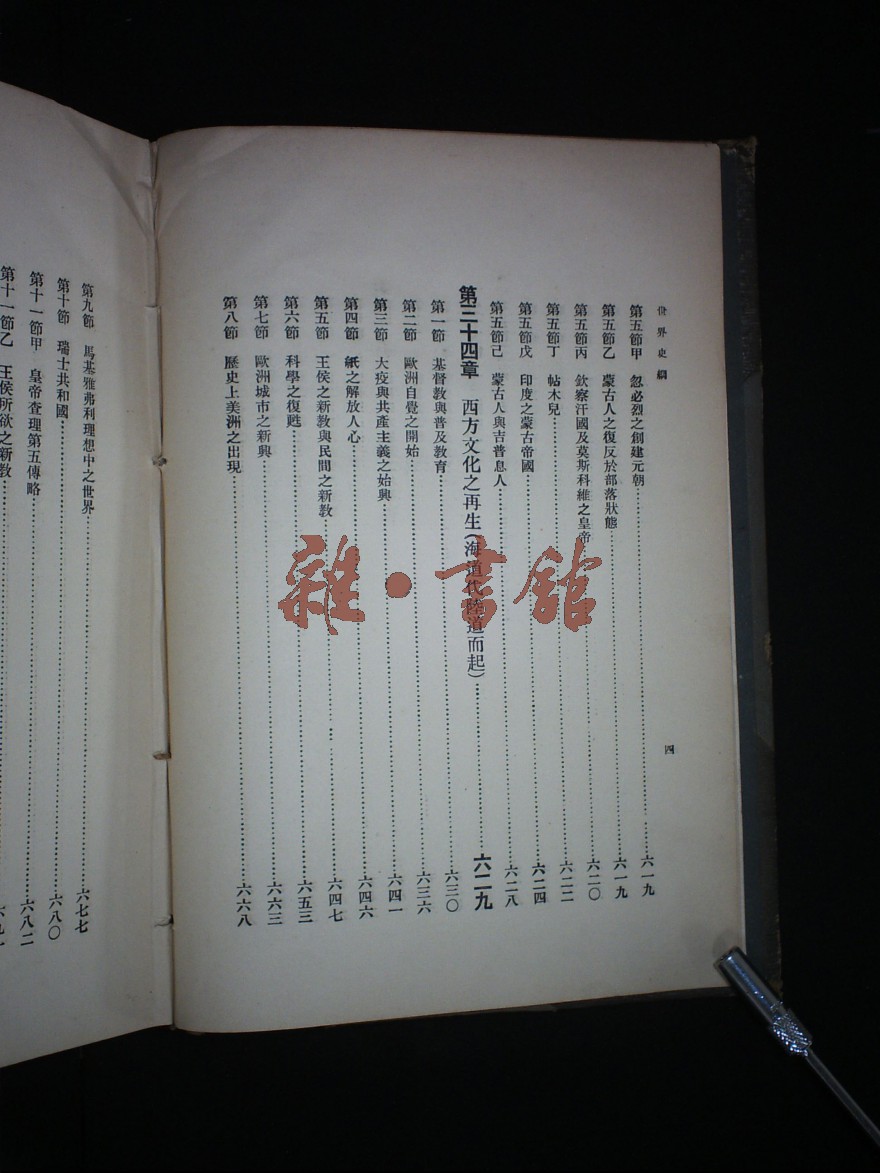 世界史綱
四
第五節甲 忽必烈之創建元朝 六一九
第五節乙 蒙古人之復反於部落狀態 六一九
第五節丙 欽察汗國及莫斯科維之皇帝 六二〇
第五節丁 帖木兒 六二二
第五節戊 印度之蒙古帝國 六二四
第五節己 蒙古人與吉普息人 六二八
第三十四章 西方文化之再生(海道代陸道而起) 六二九
第一節 基督教與普及教育 六三〇
第二節 歐洲自覺之開始 六三六
第三節 大疫與共產主義之始興 六四一
第四節 紙之解放人心 六四六
第五節 王侯之新教與民間之新教 六四七
第六節 科學之復甦 六五三
第七節 歐洲城市之新興 六六三
第八節 歷史上美洲之出現 六六八
第九節 馬基雅弗利理想中之世界 六七七
第十節 瑞士共和國 六八〇
第十一節甲 皇帝查理第五傳略 六八二
第十一節乙 王侯所欲之新教
雜·書館